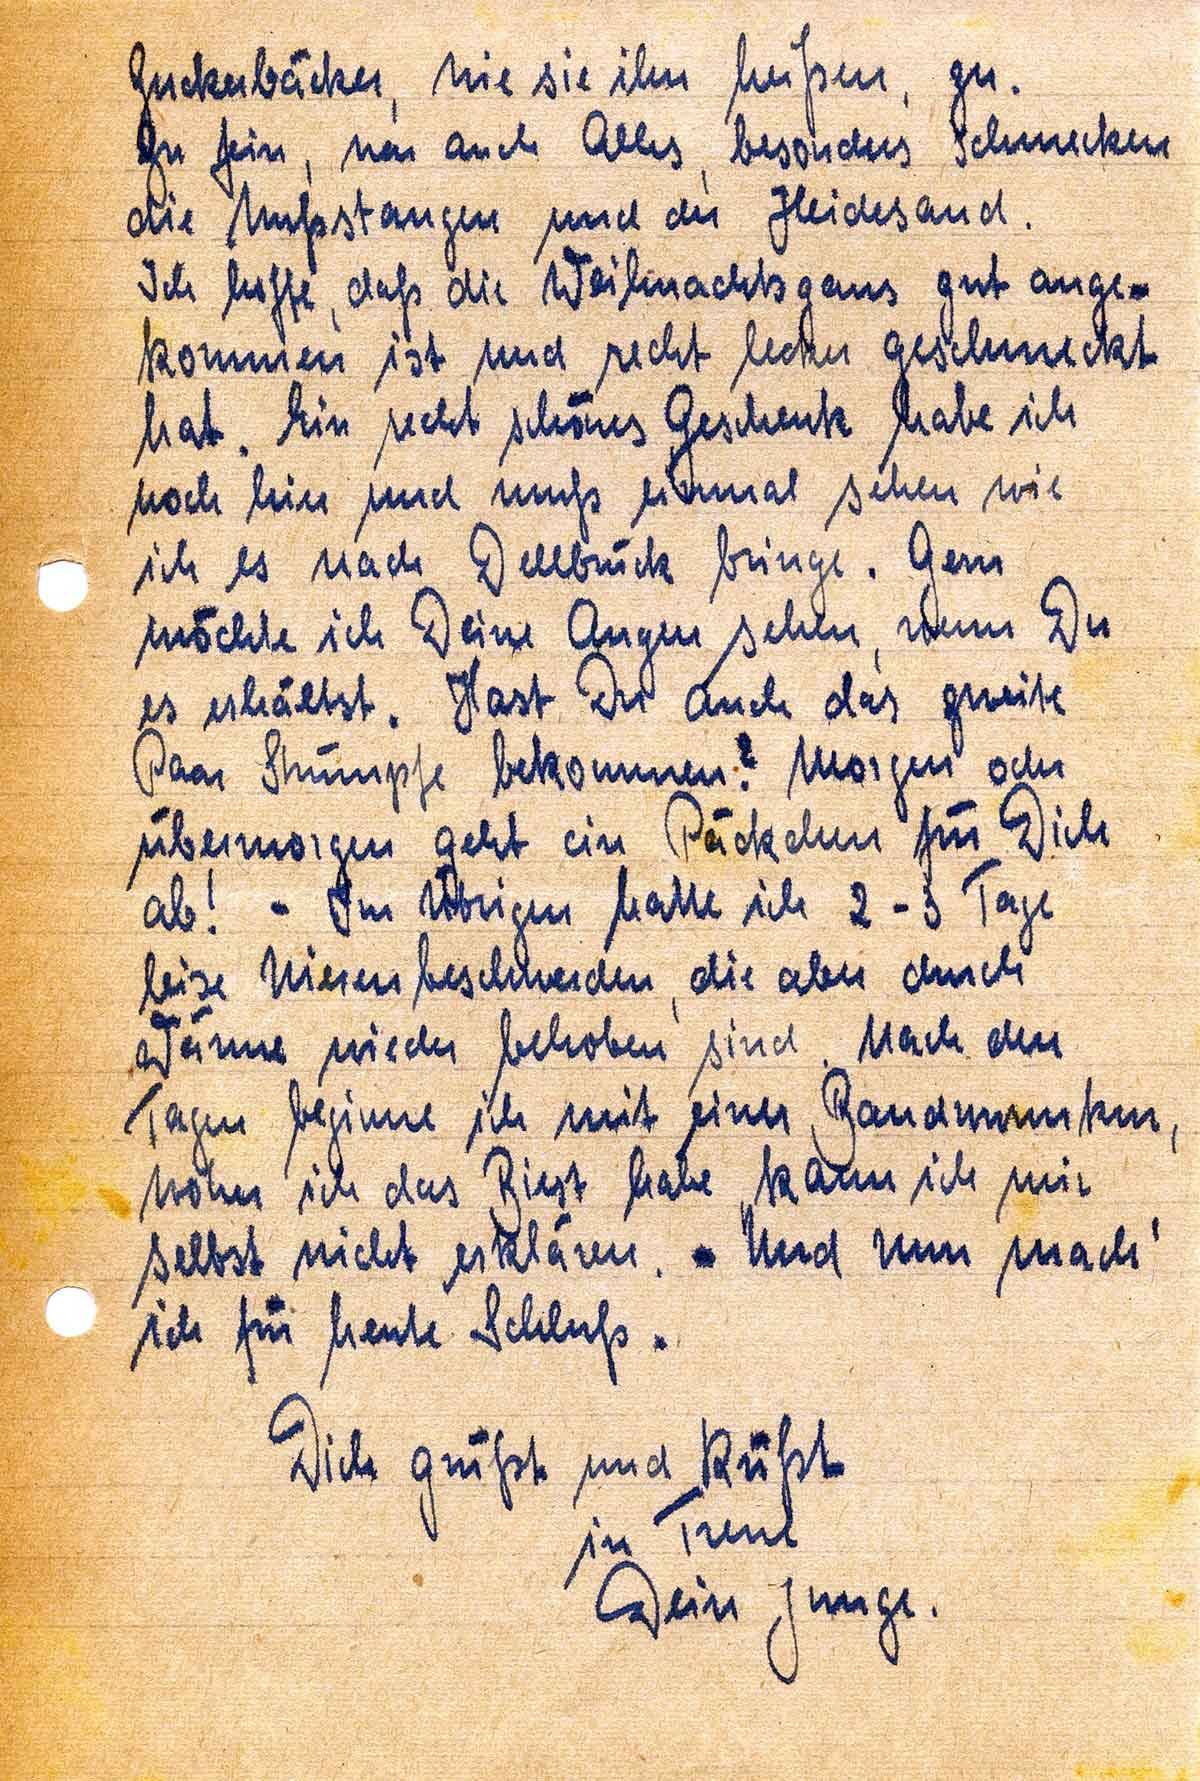 Zuckerbäcker, wie sie ihn heißen, zu.
Zu fein, war auch Alles, besonders schmecken
die Nußstangen und der Heidesand.
Ich hoffe, daß die Weihnachtsgans gut ange-
kommen ist und recht lecker geschmeckt
hat. Ein recht schönes Geschenk habe ich
noch hier und muß einmal sehen wie
ich es nach Dellbrück bringe. Gern
möchte ich Deine Augen sehen, wenn Du
es erhältst. Hast Du auch das zweite
Paar Strümpfe bekommen? Morgen oder
übermorgen geht ein Päckchen für Dich
ab! - Im Übrigen hatte ich 2-3 Tage
leise Nierenbeschwerden, die aber durch
Wärme wieder behoben sind. Nach den
Tagen beginne ich mit einer Bandwurmkur,
woher ich das Biest habe, kann ich mir
selbst nicht erklären. - Und nun mach'
ich für heute Schluß.
Dich grüßt und küßt
in Treue
Dein Junge.